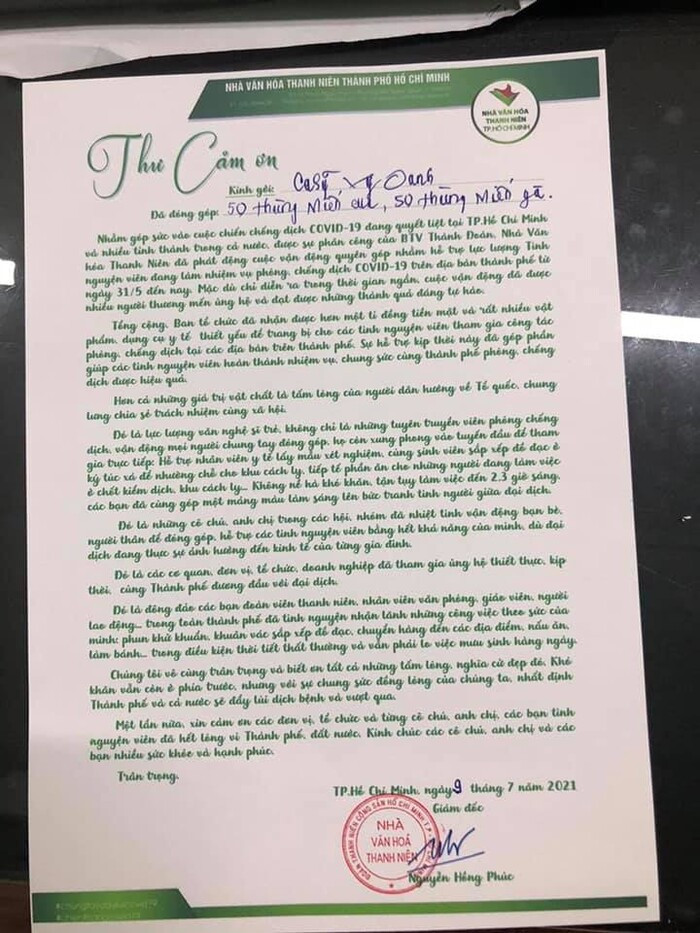 NHÀ VĂN HÓA THANH NIÊN THÀNH PHỐ HỒ CHÍ MINH
NHÀ VĂN HÓA
THANH NIÊN
TP.HỒ CHÍ MINH
Thư Cảm ơn
Kính gửi: Ca sỹ Vy Oanh
Đã đóng góp: 50 thùng Miến cua, 50 thùng Miến gà.
Nhằm góp sức vào cuộc chiến chống dịch COVID-19 đang quyết liệt tại TP.Hồ Chí Minh
và nhiều tỉnh thành trong cả nước, được sự phân công của BTV Thành Đoàn, Nhà Văn
hóa Thanh Niên đã phát động cuộc vận động quyên góp nhằm hỗ trợ lực lượng Tình
nguyện viên đang làm nhiệm vụ phòng, chống dịch COVID-19 trên địa bàn thành phố từ
ngày 31/5 đến nay. Mặc dù chỉ diễn ra trong thời gian ngắn, cuộc vận động đã được
nhiều người thương mến ủng hộ và đạt được những thành quả đáng tự hào.
Tổng cộng, Ban tổ chức đã nhận được hơn một tỉ đồng tiền mặt và rất nhiều vật
phẩm, dụng cụ y tế thiết yếu để trang bị cho các tình nguyện viên tham gia công tác
phòng, chống dịch tại các địa bàn trên thành phố. Sự hỗ trợ kịp thời này đã góp phần
giúp các tình nguyện viên hoàn thành nhiệm vụ, chung sức cùng thành phố phòng, chống
dịch được hiệu quả.
Hơn cả những giá trị vật chất là tấm lòng của người dân hướng về Tổ quốc, chung
lưng chia sẻ trách nhiệm cùng xã hội.
Đó là lực lượng văn nghệ sĩ trẻ, không chỉ là những tuyên truyền viên phòng chống
dịch, vận động mọi người chung tay đóng góp, họ còn xung phong vào tuyến đầu để tham
gia trực tiếp: Hỗ trợ nhân viên y tế lấy mẫu xét nghiệm, cùng sinh viên sắp xếp đồ đạc ở
ký túc xá để nhường chỗ cho khu cách ly, tiếp tế phần ăn cho những người đang làm việc
ở chốt kiểm dịch, khu cách ly... Không nề hà khó khăn, tận tụy làm việc đến 2,3 giờ sáng,
các bạn đã cùng góp một mảng màu làm sáng lên bức tranh tình người giữa đại dịch.
Đó là những cô chú, anh chị trong các hội, nhóm đã nhiệt tình vận động bạn bè,
người thân để đóng góp, hỗ trợ các tình nguyện viên bằng hết khả năng của mình, dù đại
dịch đang thực sự ảnh hưởng đến kinh tế của từng gia đình.
Đó là các cơ quan, đơn vị, tổ chức, doanh nghiệp đã tham gia ủng hộ thiết thực, kịp
thời, cùng Thành phố đương đầu với đại dịch.
Đó là đông đảo các bạn đoàn viên thanh niên, nhân viên văn phòng, giáo viên, người
lao động... trong toàn thành phố đã tình nguyện nhận lãnh những công việc theo sức của
mình: phun khử khuẩn, khuân vác sắp xếp đồ đạc, chuyển hàng đến các địa điểm, nấu ăn,
làm bánh... trong điều kiện thời tiết thất thường và vẫn phải lo việc mưu sinh hàng ngày.
Chúng tôi vô cùng trân trọng và biết ơn tất cả những tấm lòng, nghĩa cử đẹp đó. Khó
khăn vẫn còn ở phía trước, nhưng với sự chung sức đồng lòng của chúng ta, nhất định
Thành phố và cả nước sẽ đẩy lùi dịch bệnh và vượt qua.
Một lần nữa, xin cảm ơn các đơn vị, tổ chức và từng cô chú, anh chị, các bạn tình
nguyện viên đã hết lòng vì Thành phố, đất nước. Kính chúc các cô chú, anh chị và các
bạn nhiều sức khỏe và hạnh phúc.
Trân trọng.
TP.Hồ Chí Minh, ngày 9 tháng 7 năm 2021
Giám đốc
NHÀ
VĂN HOÁ
THANH NIÊN
Nguyễn Hồng Phúc